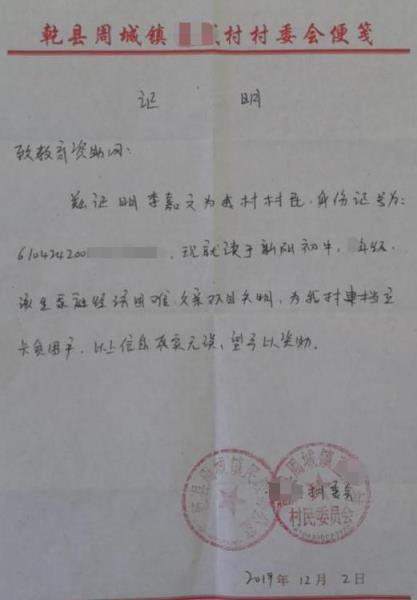 乾县周城镇 村村委会便笺
证 明
致教育资助网：
兹证明李嘉文为我村村民，身份证号为：
610424200 ，现就读于新阳初中， 年级，
该生家庭经济困难，父亲双目失明，为我村建档立
卡贫困户，以上信息真实无误，望予以资助。
村委会
村民委员会
2019年12月2日